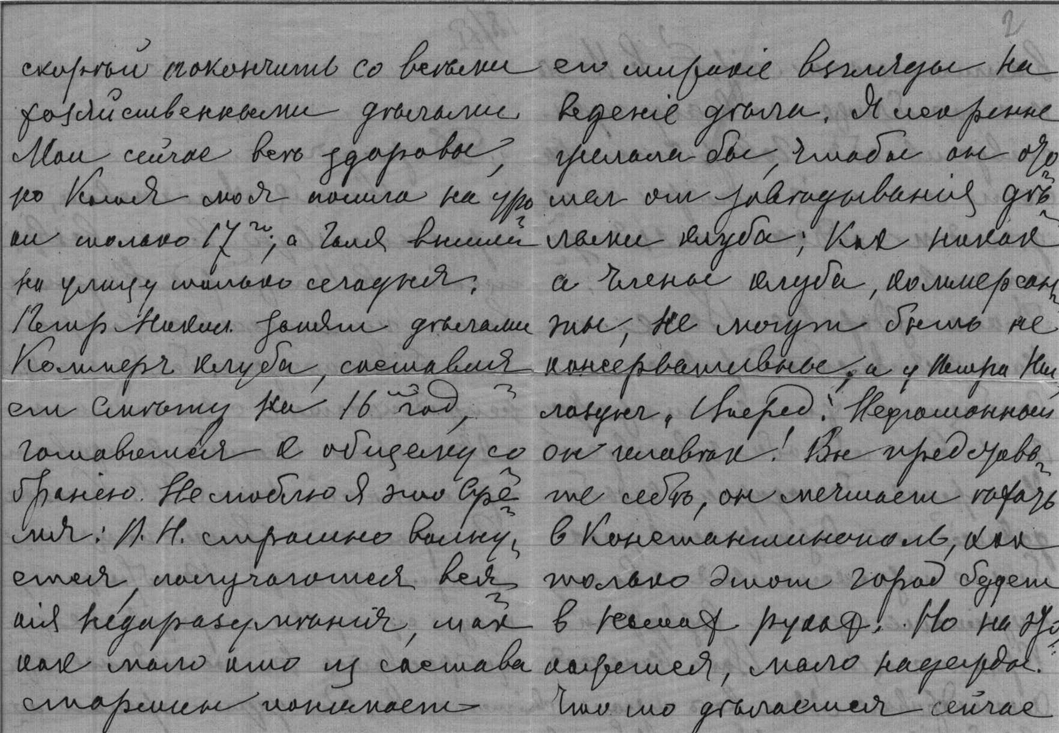 2
скорѣй покончить со всѣми
хозяйственными дѣлами.
Мои сейчас всѣ здоровы,
но Коля моя пошла на уро
ки только 17го, а Галя вышла
на улицу только сегодня.
Петр Никол. занят дѣлами
Коммерч клуба, составля
ет смѣту на 16ый год,
готовится к общему со
бранію. Не люблю я это вре
мя: П. Н. страшно волну
ется, получаются вся
кія недоразумѣнія, так
как мало кто из состава
старшин понимает
его широкіе взгляды на
веденіе дѣла. Я искренне
желала бы, чтобы он
от завѣдыванія дѣ
лами клуба; Как никак
а члены клуба, коммерсан
ты, не могут быть не
консервативные, а у Петра Ни
лозунг „Вперед! Неугомонный
он человѣк! Вы представь
те себѣ, он мечтает
в Константинополь, как
только этот город будет
в наших руках. Но на это
кажется, мало надежды.
Что то дѣлается сейчас